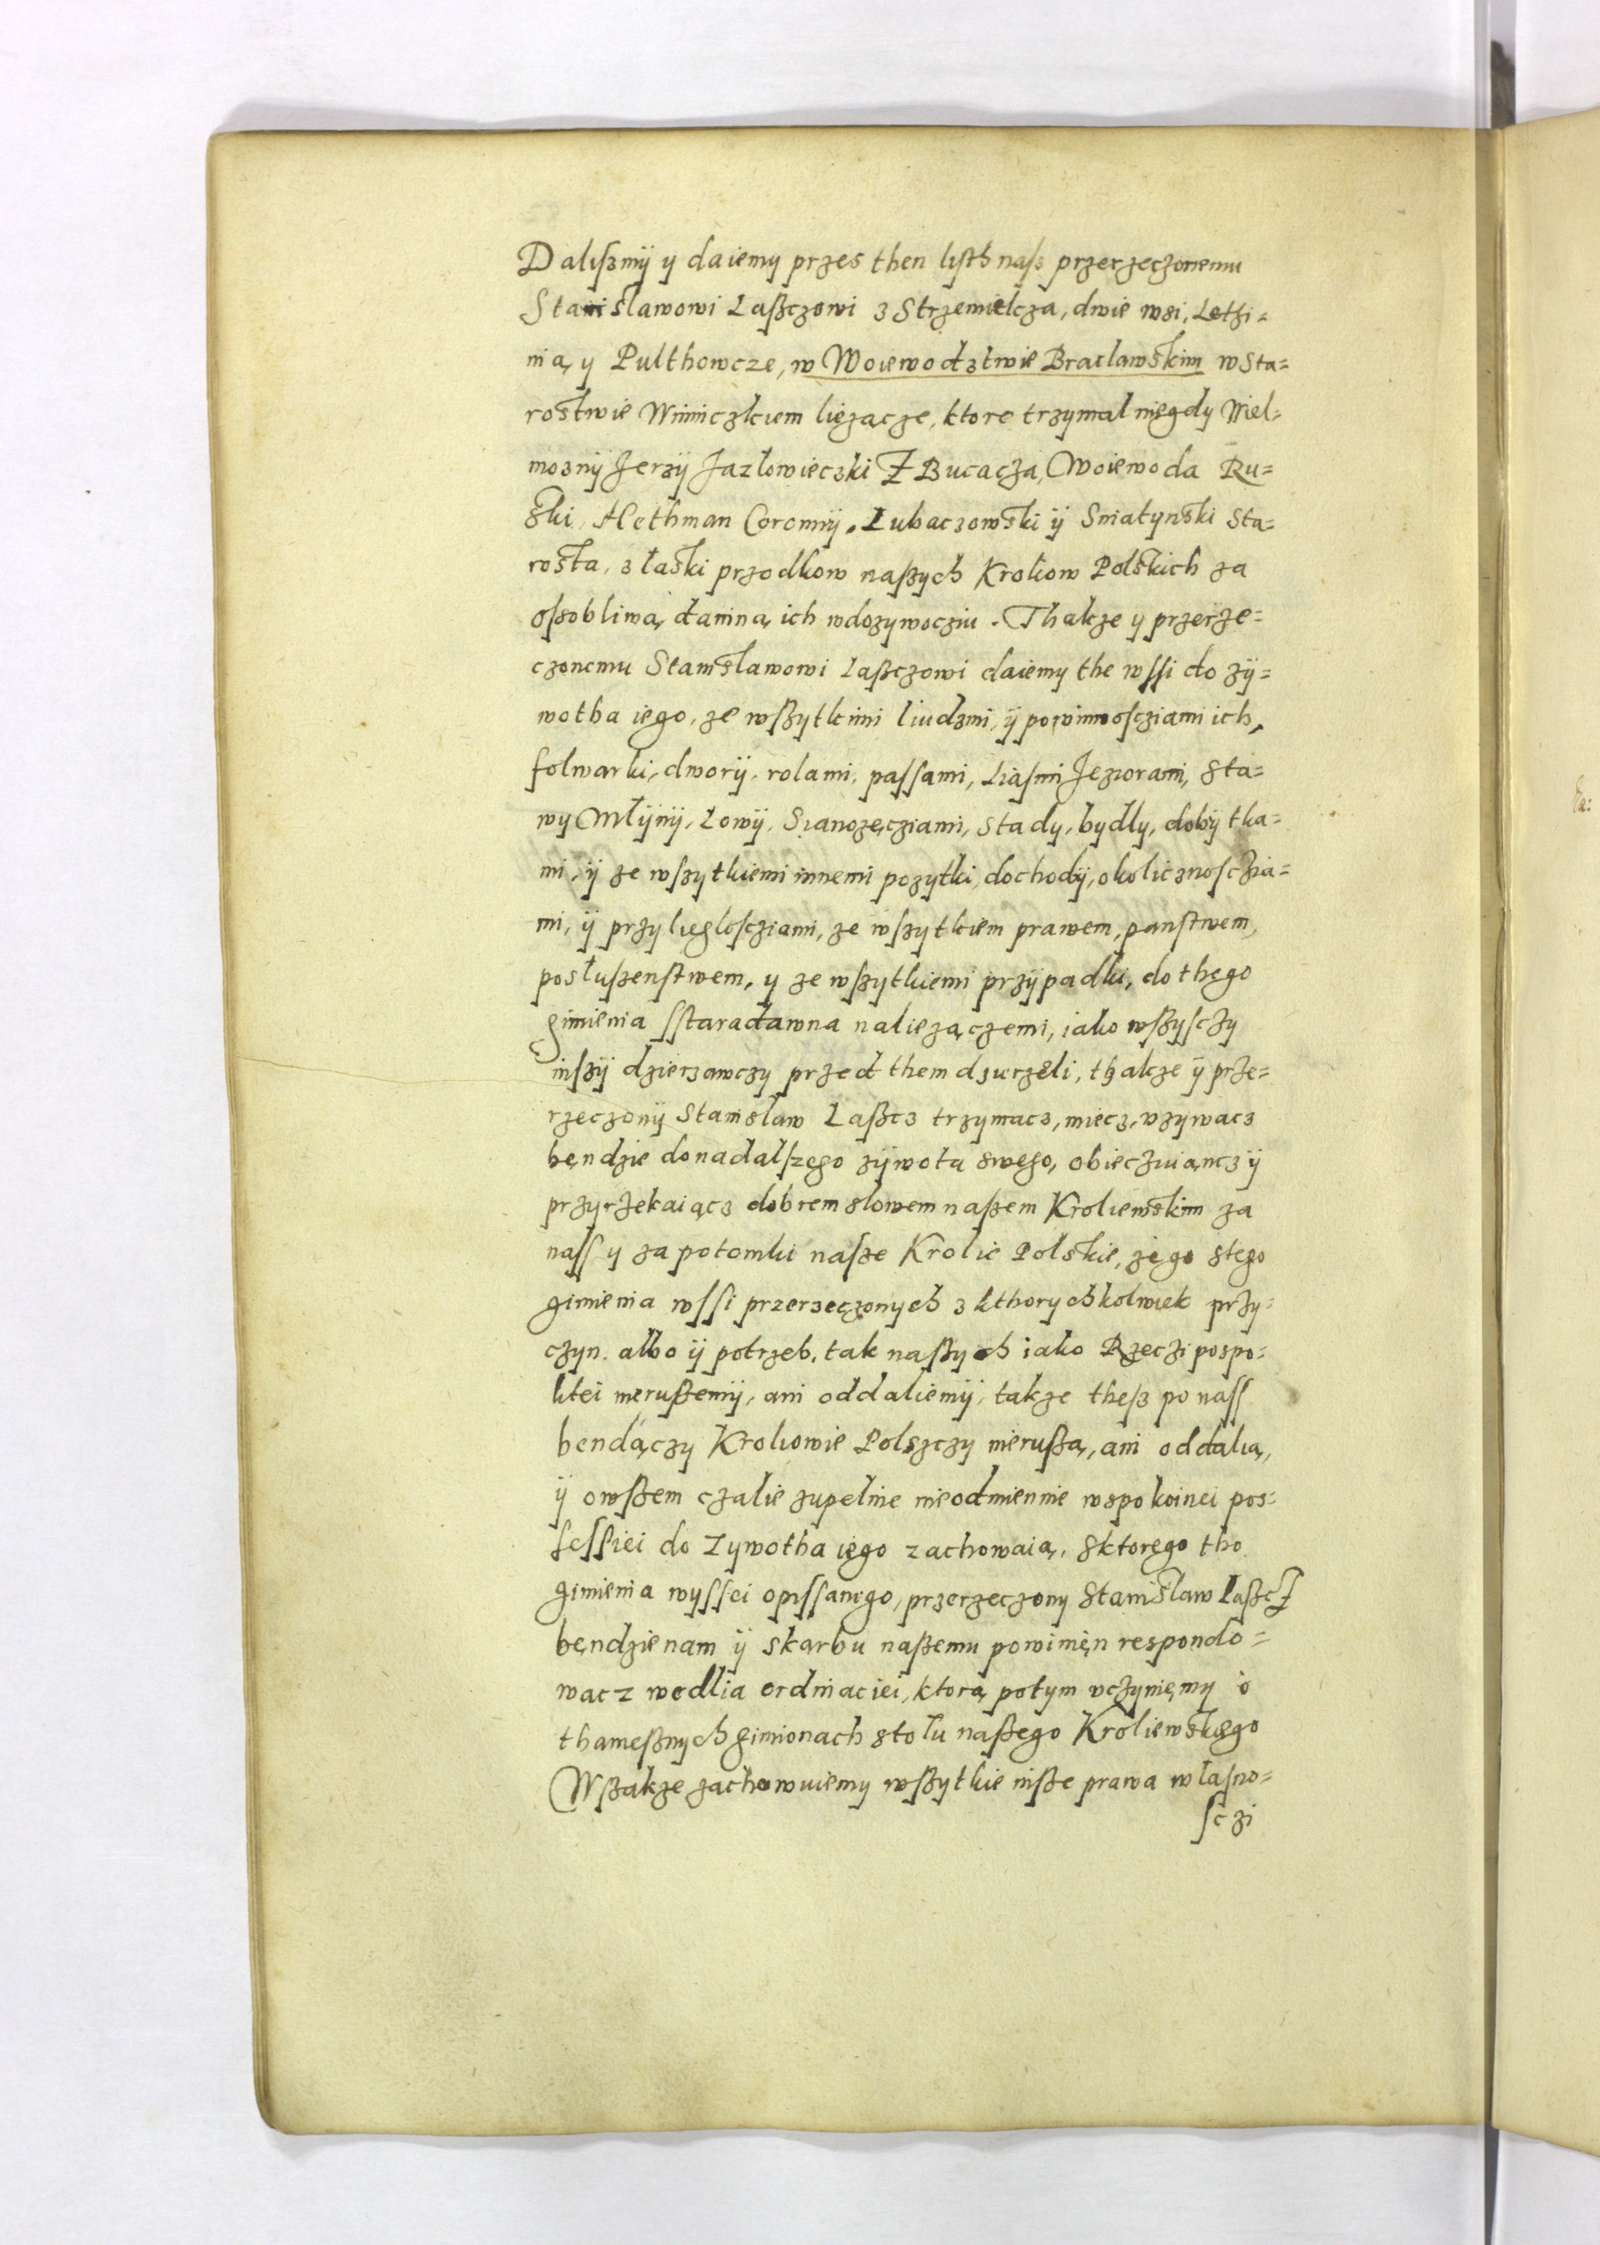 Daliszmÿ y daiemy przes then listh nasz przerzeczonemu
Stanislawowi Lasczowi z Strzemielcza, dwie wsi, Lethi=
nią, y Pulthowcze, w Woiewodztwie Braclawskim w Sta=
rostwie Winniczkiem liezącze, ktore trzymal niegdy Wiel=
moznÿ Jerzÿ Jazlowieczki Z Bucacza, Woiewoda Ru=
ski, Hethman Coronnÿ, Lubaczowski ÿ Sniatynski Sta=
rosta, z łaski przodkow naszych Krolow Polskich za
oszobliwą daniną ich wdozywocziu. Thakze y przerze=
czonemu Stanislawowi Laszczowi daiemy the wssi do zÿ=
wotha iego, ze wszytkimi liudzmi, ÿ powinnoscziami ich,
folwarki, dworÿ, rolami, passami, Liasmi Jeziorami, Sta=
wy Młÿnÿ, Łowÿ, Sianozęcziami, stady, bydły, dobÿtka=
mi, ÿ ze wszytkiemi innemi pozytki, dochodÿ, okolicznosczia=
mi, ÿ przyległoscziami, ze wszytkiem prawem, panstwem,
posłuszenstwem, y ze wszytkiemi przÿpadki, do thego
gimienia sstaradawna naliezączemi, iako wszysczy
inszÿ dzierzawczy przed them dzierzeli, thakze ÿ prze=
rzeczonÿ Stanislaw Laszcz trzymacz, miecz, uzywacz
bęndzie do nadalszego zÿwota swego, obiecziuiąncz ÿ
przyrzekaiącz dobrem slowem naszem Kroliewskim za
nass y za potomki nasze Krolie Polskie, ze go s tego
gimienia wssi przerzeczonych z kthorychkolwiek przy=
czyn albo ÿ potrzeb, tak naszych iako Rzeczi pospo=
litei nieruszemÿ, ani oddaliemÿ, takze thesz po nass
bendączy Krolowie Polszczy nieruszą, ani oddalią,
ÿ owszem czalie zupelnie nieodmiennie w spokoinei pos=
sessiei do Zywotha iego zachowaią. S ktorego tho
gimienia wyssei opissanego, przerzeczony Stanislaw Laszcz
bęndzie nam ÿ skarbu naszemu powinięn respondo=
wacz wedlia ordinaciei, ktorą potym uczyniemy o
thamesznych gimionach stołu naszego Kroliewskiego
Wszakze zachowuiemy wszytkie insze prawa własno=
sczi